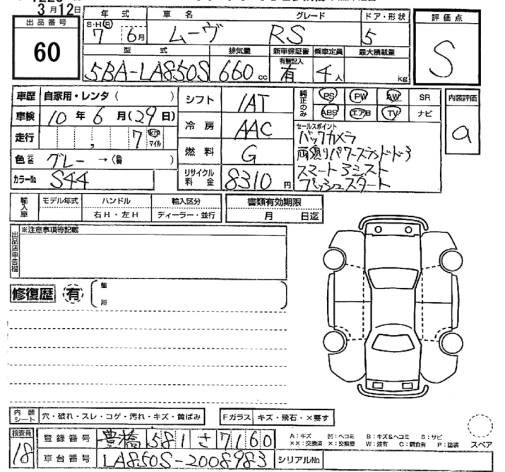 3月12日
出品番号 年式 車名 グレード ドア・形状 評価点
60 S・H・R 7年 6月 ムーヴ RS 5 S
型式 排気量 新車保証書 乗車定員 最大積載量
5BA-LA850S 660cc 有 4人 kg
車歴 自家用・レンタ( ) シフト IAT 純正のみ PS PW AW SR 内装評価
車検 10年6月(29日) 冷房 AAC ABS エアB TV ナビ a
走行 , 7 km マイル 燃料 G セールスポイント
バックカメラ
色 グレー →( ) 両側パワースライドドア
スマートアシスト
カラーNo. S44 リサイクル料金 8310円 プッシュスタート
輸入車 モデル年式 ハンドル 輸入区分 書類有効期限
右H・左H ディーラー・並行 月 日迄
※注意事項等記載
修復歴 有
内装シート 穴・破れ・スレ・コゲ・汚れ・キズ・黄ばみ Fガラス キズ・飛石・×要す
検査員 登録番号 豊橋 581 さ 7160 A:キズ B:キズ&ヘコミ S:サビ
18 P:塗装 スペア
車台番号 LA850S-2008983 シリアルNo.